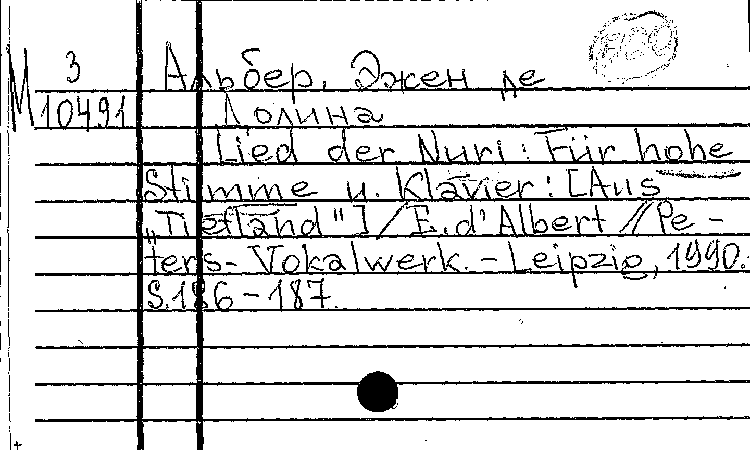 М 3 Альбер, Эжен де
10491 Долина
Lied der Nuri: Für hohe
Stimme u. Klavier: [Aus
„Tiefland"] / E. d'Albert // Pe-
ters-Vokalwerk. - Leipzig, 1990.
S. 186 - 187.